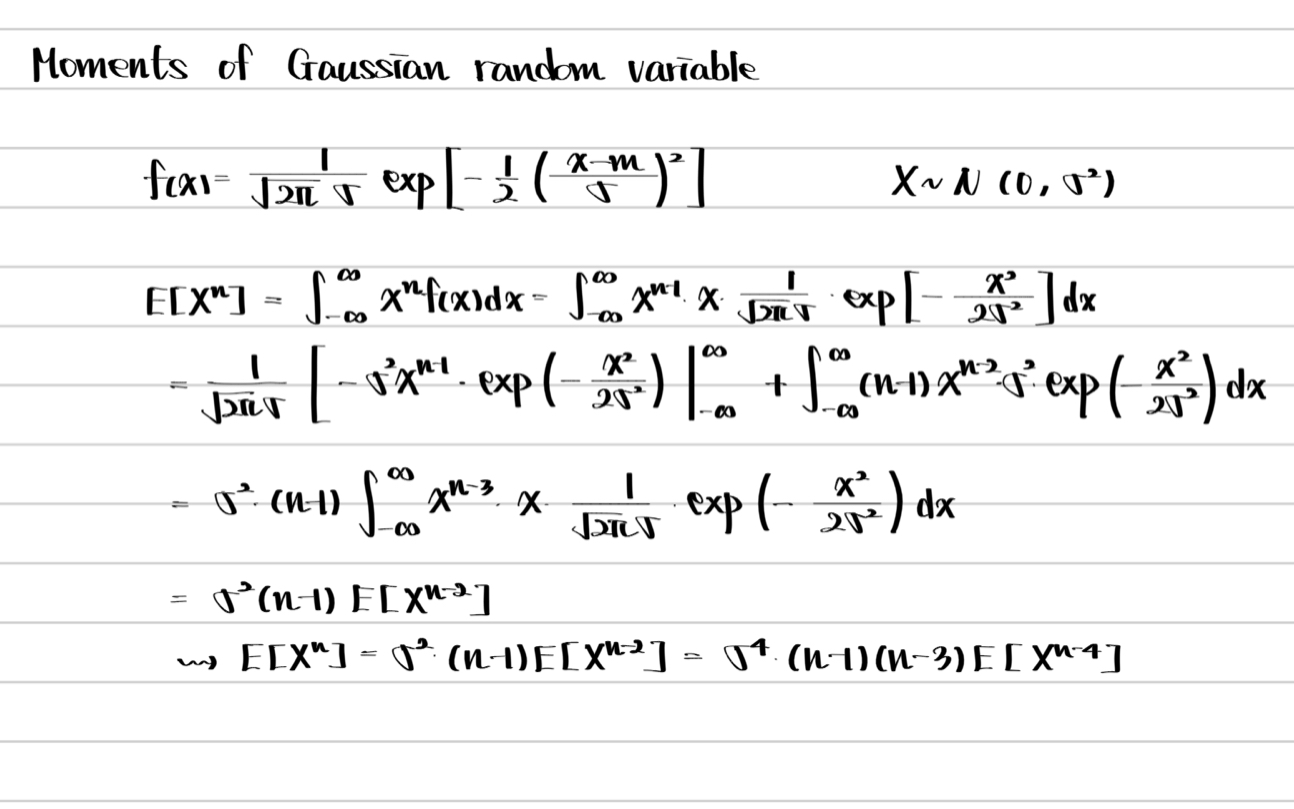 Moments of Gaussian random variable
f(x) = 1/(√2π σ) exp[-1/2 ((x-m)/σ)²] X ~ N (0, σ²)
E[Xⁿ] = ∫_{-∞}^{∞} xⁿf(x)dx = ∫_{-∞}^{∞} xⁿ⁻¹·x·1/(√2π σ)·exp[-x²/2σ²]dx
= 1/(√2π σ) [-σ²xⁿ⁻¹·exp(-x²/2σ²)|_{-∞}^{∞} + ∫_{-∞}^{∞} (n-1)xⁿ⁻²·σ²·exp(-x²/2σ²)dx
= σ²·(n-1) ∫_{-∞}^{∞} xⁿ⁻³·x·1/(√2π σ)·exp(-x²/2σ²)dx
= σ²(n-1) E[Xⁿ⁻²]
⇝ E[Xⁿ] = σ²·(n-1)E[Xⁿ⁻²] = σ⁴·(n-1)(n-3)E[Xⁿ⁻⁴]